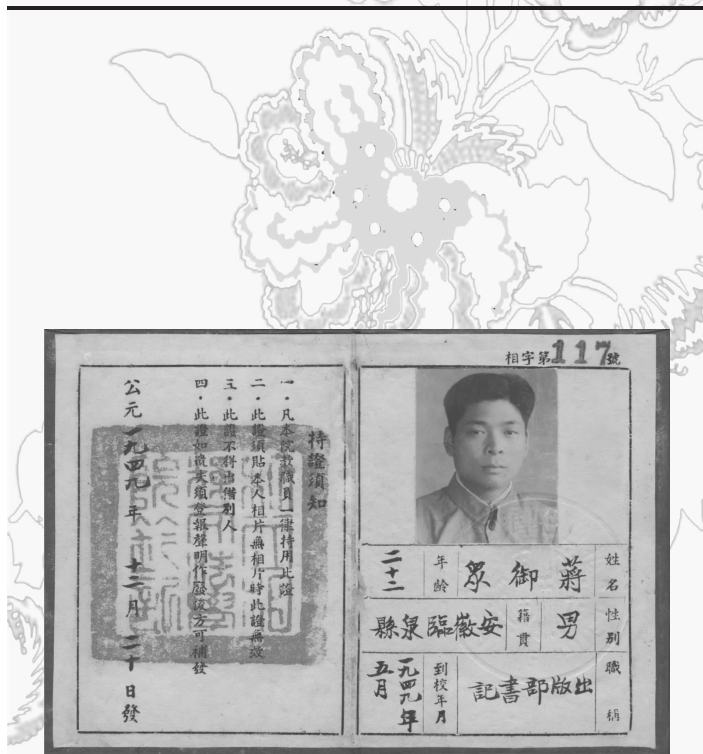 相字第117號
姓名 蔣御眾
年齡 二十二
性別 男
籍貫 安徽臨泉縣
職稱 出版部書記
到校年月 一九四九年五月
持證須知
一．凡本院教職員一律持用此證
二．此證須貼本人相片無相片時此證無效
三．此證不得出借別人
四．此證如遺失須登報聲明作廢後方可補發
公元一九四九年十二月二十日發